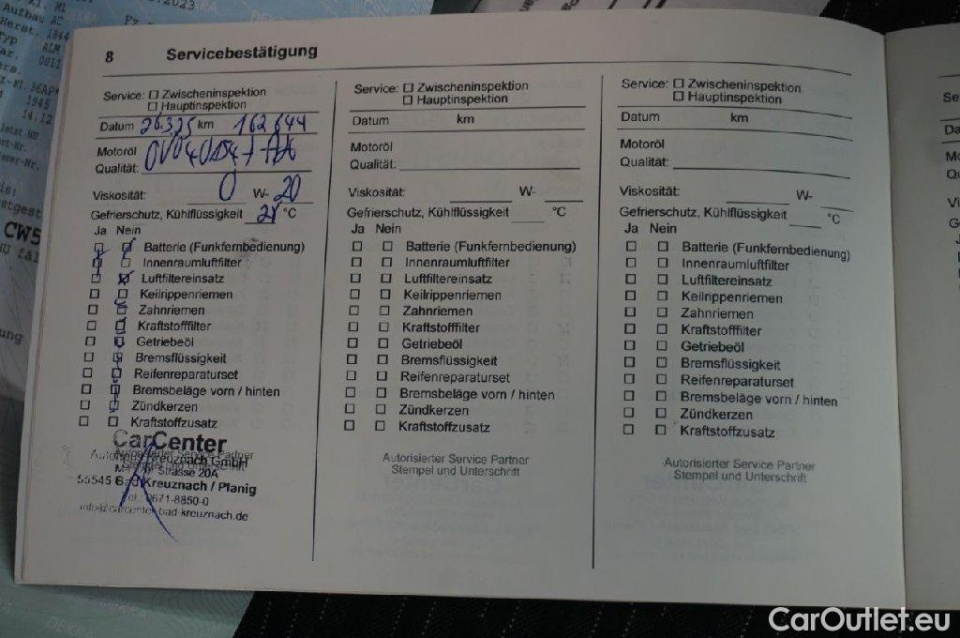 8 Servicebestätigung
Service: Zwischeninspektion
Hauptinspektion
Datum 26.3.25 km 162644
Motoröl
Qualität:
Viskosität: 0 W- 20
Gefrierschutz, Kühlflüssigkeit °C
Ja Nein
Batterie (Funkfernbedienung)
Innenraumluftfilter
Luftfiltereinsatz
Keilrippenriemen
Zahnriemen
Kraftstofffilter
Getriebeöl
Bremsflüssigkeit
Reifenreparaturset
Bremsbeläge vorn / hinten
Zündkerzen
Kraftstoffzusatz
CarCenter
Autohaus Kreuznach GmbH
Straße 20A
55545 Bad Kreuznach / Planig
Tel. 0671-8850-0
info@carcenter-bad-kreuznach.de
Service: Zwischeninspektion
Hauptinspektion
Datum km
Motoröl
Qualität:
Viskosität: W-
Gefrierschutz, Kühlflüssigkeit °C
Ja Nein
Batterie (Funkfernbedienung)
Innenraumluftfilter
Luftfiltereinsatz
Keilrippenriemen
Zahnriemen
Kraftstofffilter
Getriebeöl
Bremsflüssigkeit
Reifenreparaturset
Bremsbeläge vorn / hinten
Zündkerzen
Kraftstoffzusatz
Autorisierter Service Partner
Stempel und Unterschrift
Service: Zwischeninspektion
Hauptinspektion
Datum km
Motoröl
Qualität:
Viskosität: W-
Gefrierschutz, Kühlflüssigkeit °C
Ja Nein
Batterie (Funkfernbedienung)
Innenraumluftfilter
Luftfiltereinsatz
Keilrippenriemen
Zahnriemen
Kraftstofffilter
Getriebeöl
Bremsflüssigkeit
Reifenreparaturset
Bremsbeläge vorn / hinten
Zündkerzen
Kraftstoffzusatz
Autorisierter Service Partner
Stempel und Unterschrift
CarOutlet.eu